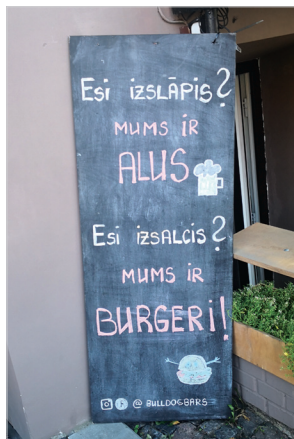 Esi izslāpis?
MUMS iR
ALUS
Esi izsalcis?
MUMS iR
BURGERi!
@ BULLDOGBARS